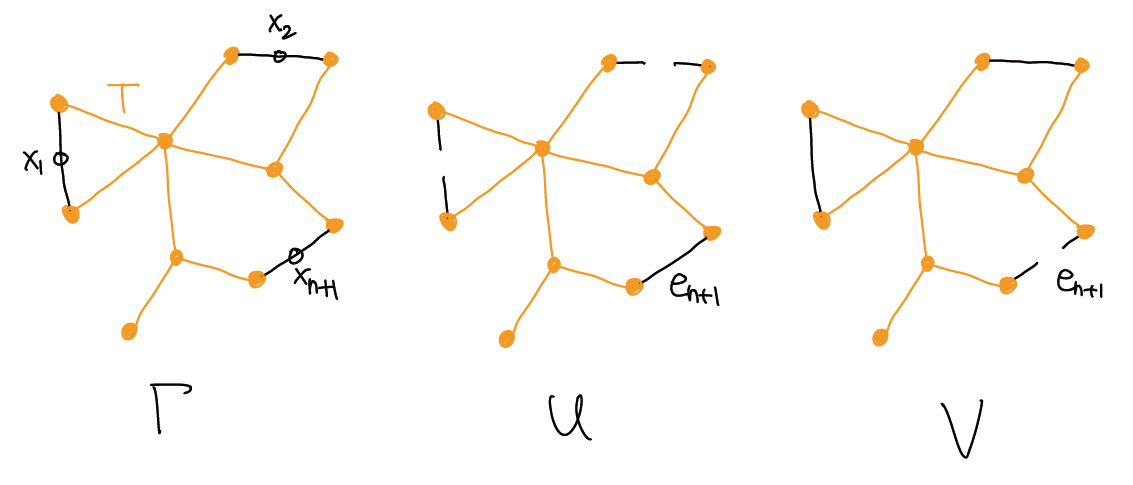 x₂
T
x₁
xₙ₊₁
eₙ₊₁
eₙ₊₁
Γ
U
V